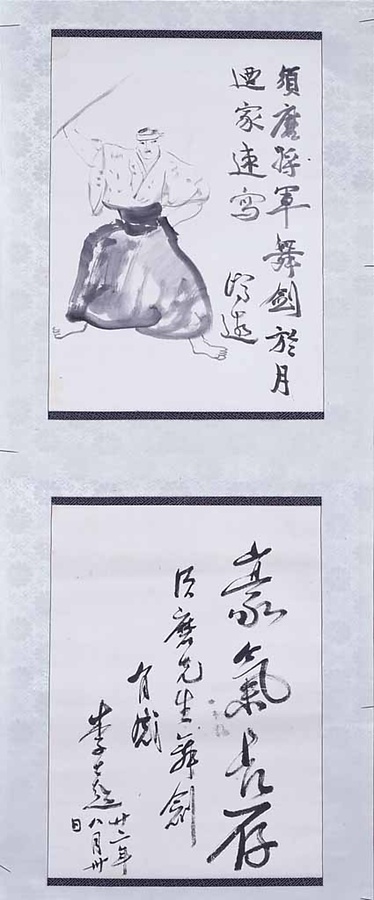 須磨将軍舞剑於月
迺家速寫
豪氣長存
須磨先生舞劍
有感
李
廿二年
八月卅
日